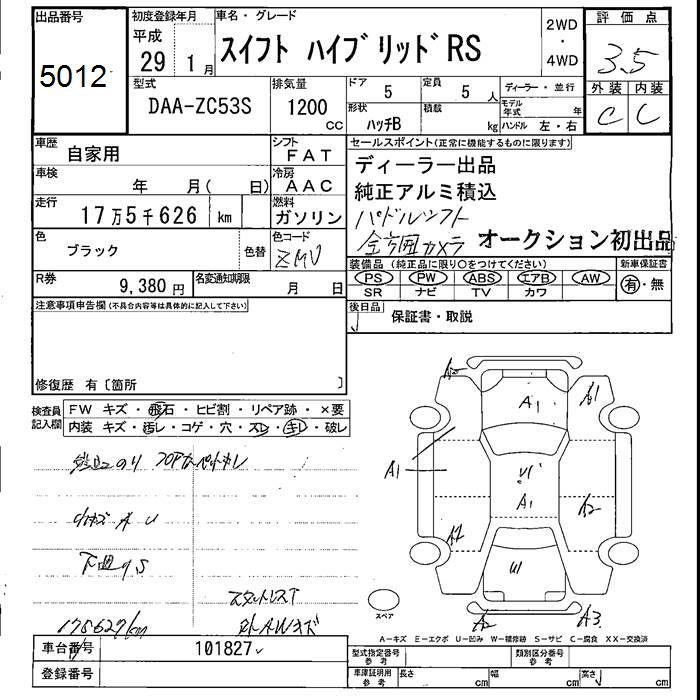 出品番号
5012
初度登録年月
平成
29 1月
車名・グレード
スイフト ハイブリッド RS
2WD
・
4WD
評価点
3.5
外装 内装
C C
型式
DAA-ZC53S
排気量
1200
cc
ドア
5
定員
5 人
ディーラー・並行
形状
ハッチB
積載
kg
モデル
年式 年
ハンドル 左・右
車歴
自家用
シフト
FAT
車検
年 月( 日)
冷房
AAC
走行
17万5千626 km
燃料
ガソリン
色
ブラック
色替
色コード
ZMV
R券
9,380 円
名変通知期限
月 日
セールスポイント(正常に機能するものに限ります)
ディーラー出品
純正アルミ積込
パドルシフト
全方囲カメラ オークション初出品
装備品(純正品に限り○をつけてください)
新車保証書
PS PW ABS エアB AW
SR ナビ TV カワ
有・無
後日品
保証書・取説
注意事項申告欄(不具合内容等は具体的に記入して下さい)
修復歴 有〔箇所 〕
検査員
記入欄
FW キズ・飛石・ヒビ割・リペア跡・×要
内装 キズ・汚レ・コゲ・穴・スレ・キレ・破レ
下回りS
スタットレスT
175627km
外AWキズ
A1
A1
A1
A1
A2
A2
A3
U
スペア
A-キズ E-エクボ U-凹み W-補修跡 S-サビ C-腐食 XX-交換済
車台番号
101827
登録番号
型式指定番号
参考
類別区分番号
参考
車庫証明用
参考
長さ cm
幅 cm
高さ cm